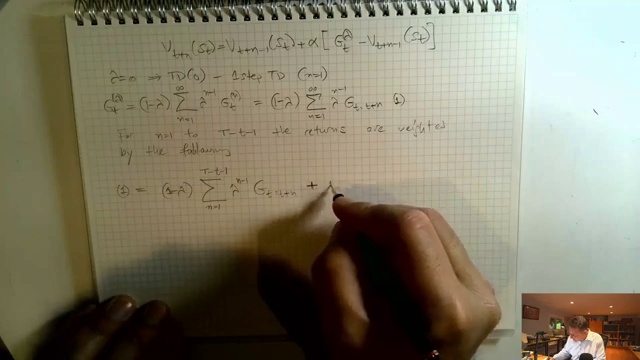 V_{t+n}(S_t) = V_{t+n-1}(S_t) + α[G_t^λ - V_{t+n-1}(S_t)]
λ=0 ⇒ TD(0) - 1 step TD (n=1)
G_t^{(λ)} = (1-λ) ∑_{n=1}^{∞} λ^{n-1} G_t^{(n)} = (1-λ) ∑_{n=1}^{∞} λ^{n-1} G_{t:t+n} (1)
For n=1 to T-t-1 the returns are weighted
by the following
(1) = (1-λ) ∑_{n=1}^{T-t-1} λ^{n-1} G_{t:t+n} +